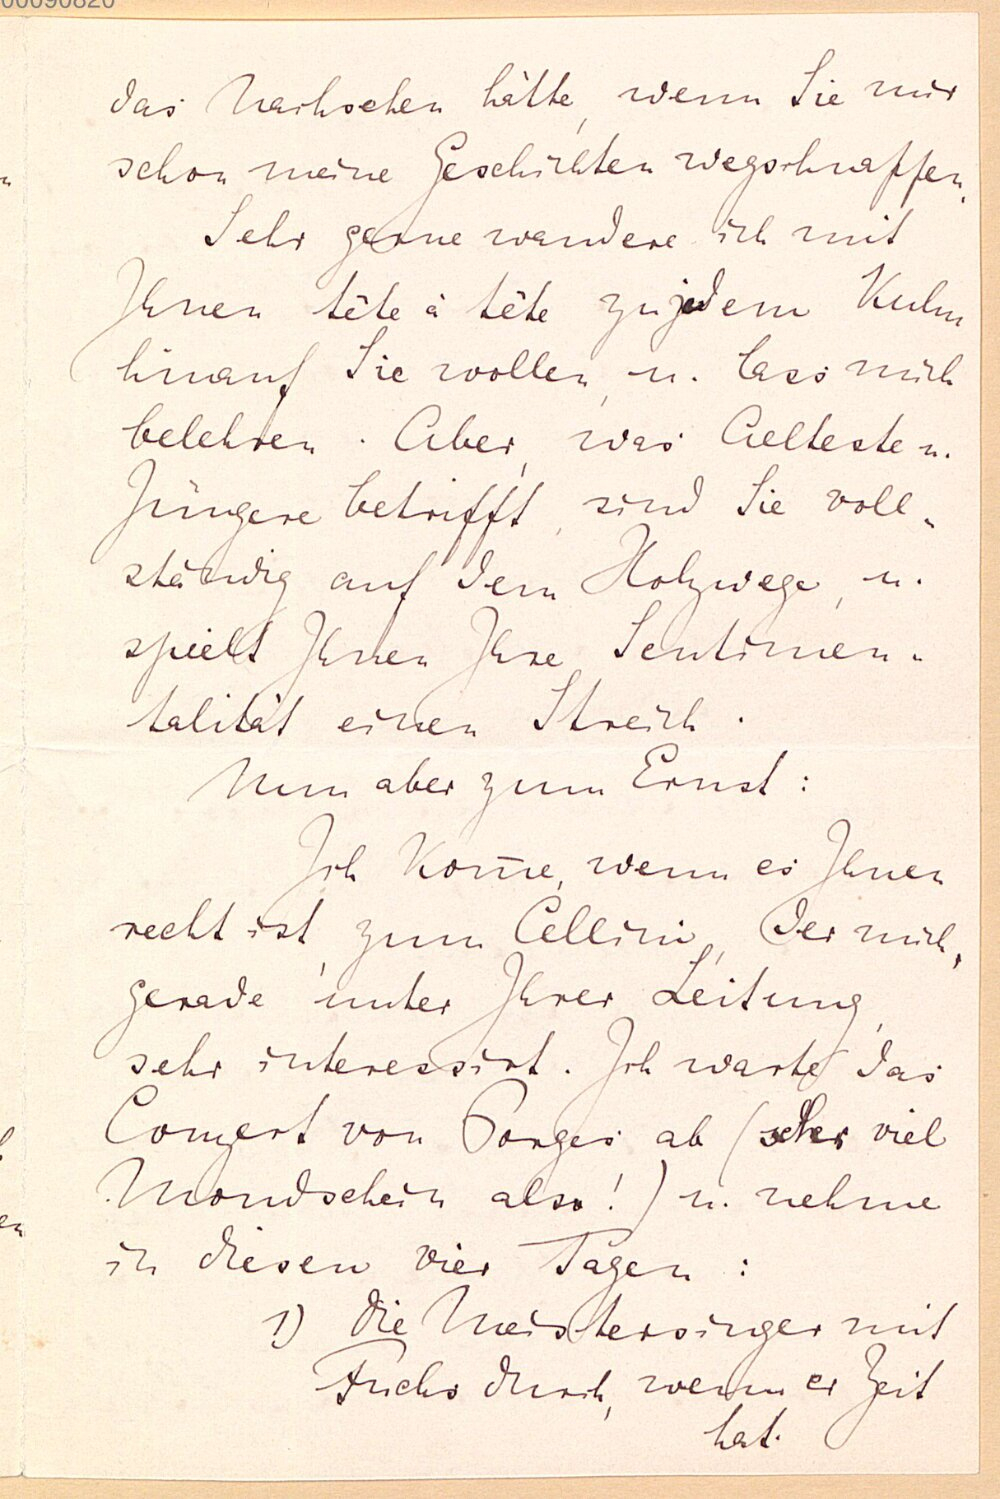 00090820
das Nachsehen hätte, wenn Sie mir
schon meine Geschichten wegschnappen.
Sehr gerne wandere ich mit
Ihnen tête à tête zu jedem Kulm
hinauf Sie wollen, u. lass mich
belehren. Aber, was Aelteste u.
Jüngere betrifft, sind Sie voll-
ständig auf dem Holzwege, u.
spielt Ihnen Ihre Sentimen-
talität einen Streich.
Nun aber zum Ernst:
Ich kom̅e, wenn es Ihnen
recht ist, zum Cellini, der mich,
gerade unter Ihrer Leitung,
sehr interessirt. Ich warte das
Conzert von Porges ab (sehr viel
Mondschein also!) u. nehme
in diesen vier Tagen:
1) die Meistersinger mit
Fuchs durch, wenn er Zeit
hat.